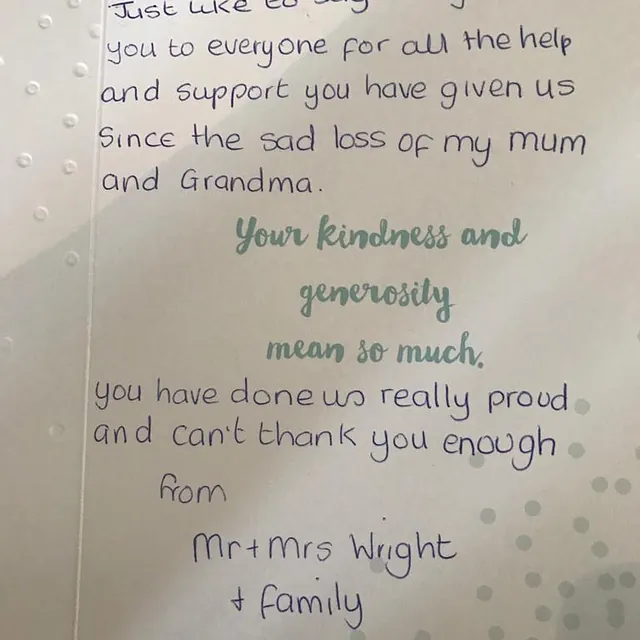 Just like to say
you to everyone for all the help
and support you have given us
Since the sad loss of my mum
and Grandma.
Your kindness and
generosity
mean so much.
you have done us really proud
and can't thank you enough
from
Mr + Mrs Wright
+ family